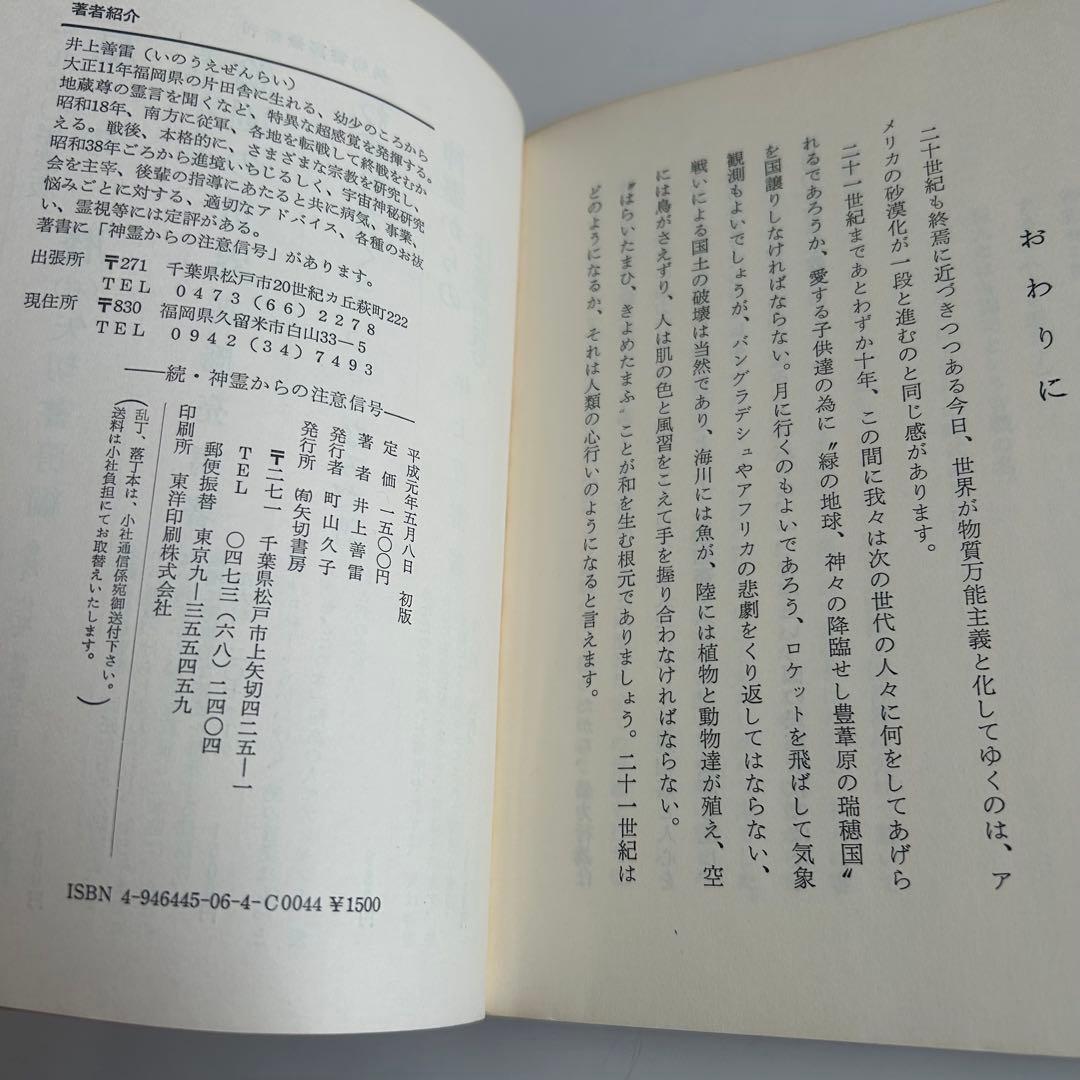 おわりに
二十世紀も終焉に近づきつつある今日、世界が物質万能主義と化してゆくのは、ア
メリカの砂漠化が一段と進むのと同じ感があります。
二十一世紀まであとわずか十年、この間に我々は次の世代の人々に何をしてあげら
れるであろうか、愛する子供達の為に〝緑の地球、神々の降臨せし豊葦原の瑞穂国〟
を国譲りしなければならない。月に行くのもよいであろう、ロケットを飛ばして気象
観測もよいでしょうが、バングラデシュやアフリカの悲劇をくり返してはならない、
戦いによる国土の破壊は当然であり、海川には魚が、陸には植物と動物達が殖え、空
には鳥がさえずり、人は肌の色と風習をこえて手を握り合わなければならない。
〝はらいたまひ、きよめたまふ〟ことが和を生む根元でありましょう。二十一世紀は
どのようになるか、それは人類の心行いのようになると言えます。
著者紹介
井上善雷（いのうえぜんらい）
大正11年福岡県の片田舎に生れる、幼少のころから
地蔵尊の霊言を聞くなど、特異な超感覚を発揮する。
昭和18年、南方に従軍、各地を転戦して終戦をむか
える。戦後、本格的に、さまざまな宗教を研究し、
昭和38年ごろから進境いちじるしく、宇宙神秘研究
会を主宰、後輩の指導にあたると共に病気、事業、
悩みごとに対する、適切なアドバイス、各種のお祓
い、霊視等には定評がある。
著書に「神霊からの注意信号」があります。
出張所 〒271 千葉県松戸市20世紀ヵ丘萩町222
TEL 0473(66)2278
現住所 〒830 福岡県久留米市白山33—5
TEL 0942(34)7493
——続・神霊からの注意信号——
平成元年五月八日 初版
定価 一五〇〇円
著者 井上善雷
発行者 町山久子
発行所 ㈲矢切書房
〒二七一 千葉県松戸市上矢切四二五—一
TEL 〇四七三(六八)二四〇四
郵便振替 東京九—三五五四五九
印刷所 東洋印刷株式会社
(乱丁、落丁本は、小社通信係宛御送付下さい。
送料は小社負担にてお取替えいたします。)
ISBN 4-946445-06-4-C0044 ¥1500